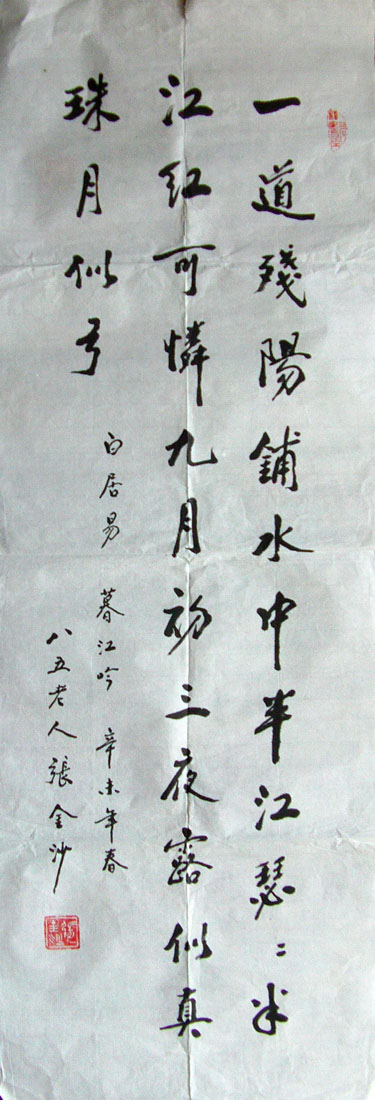 一道殘陽鋪水中半江瑟〻半
江紅可憐九月初三夜露似真
珠月似弓
白居易 暮江吟 辛未年春
八五老人張金沙